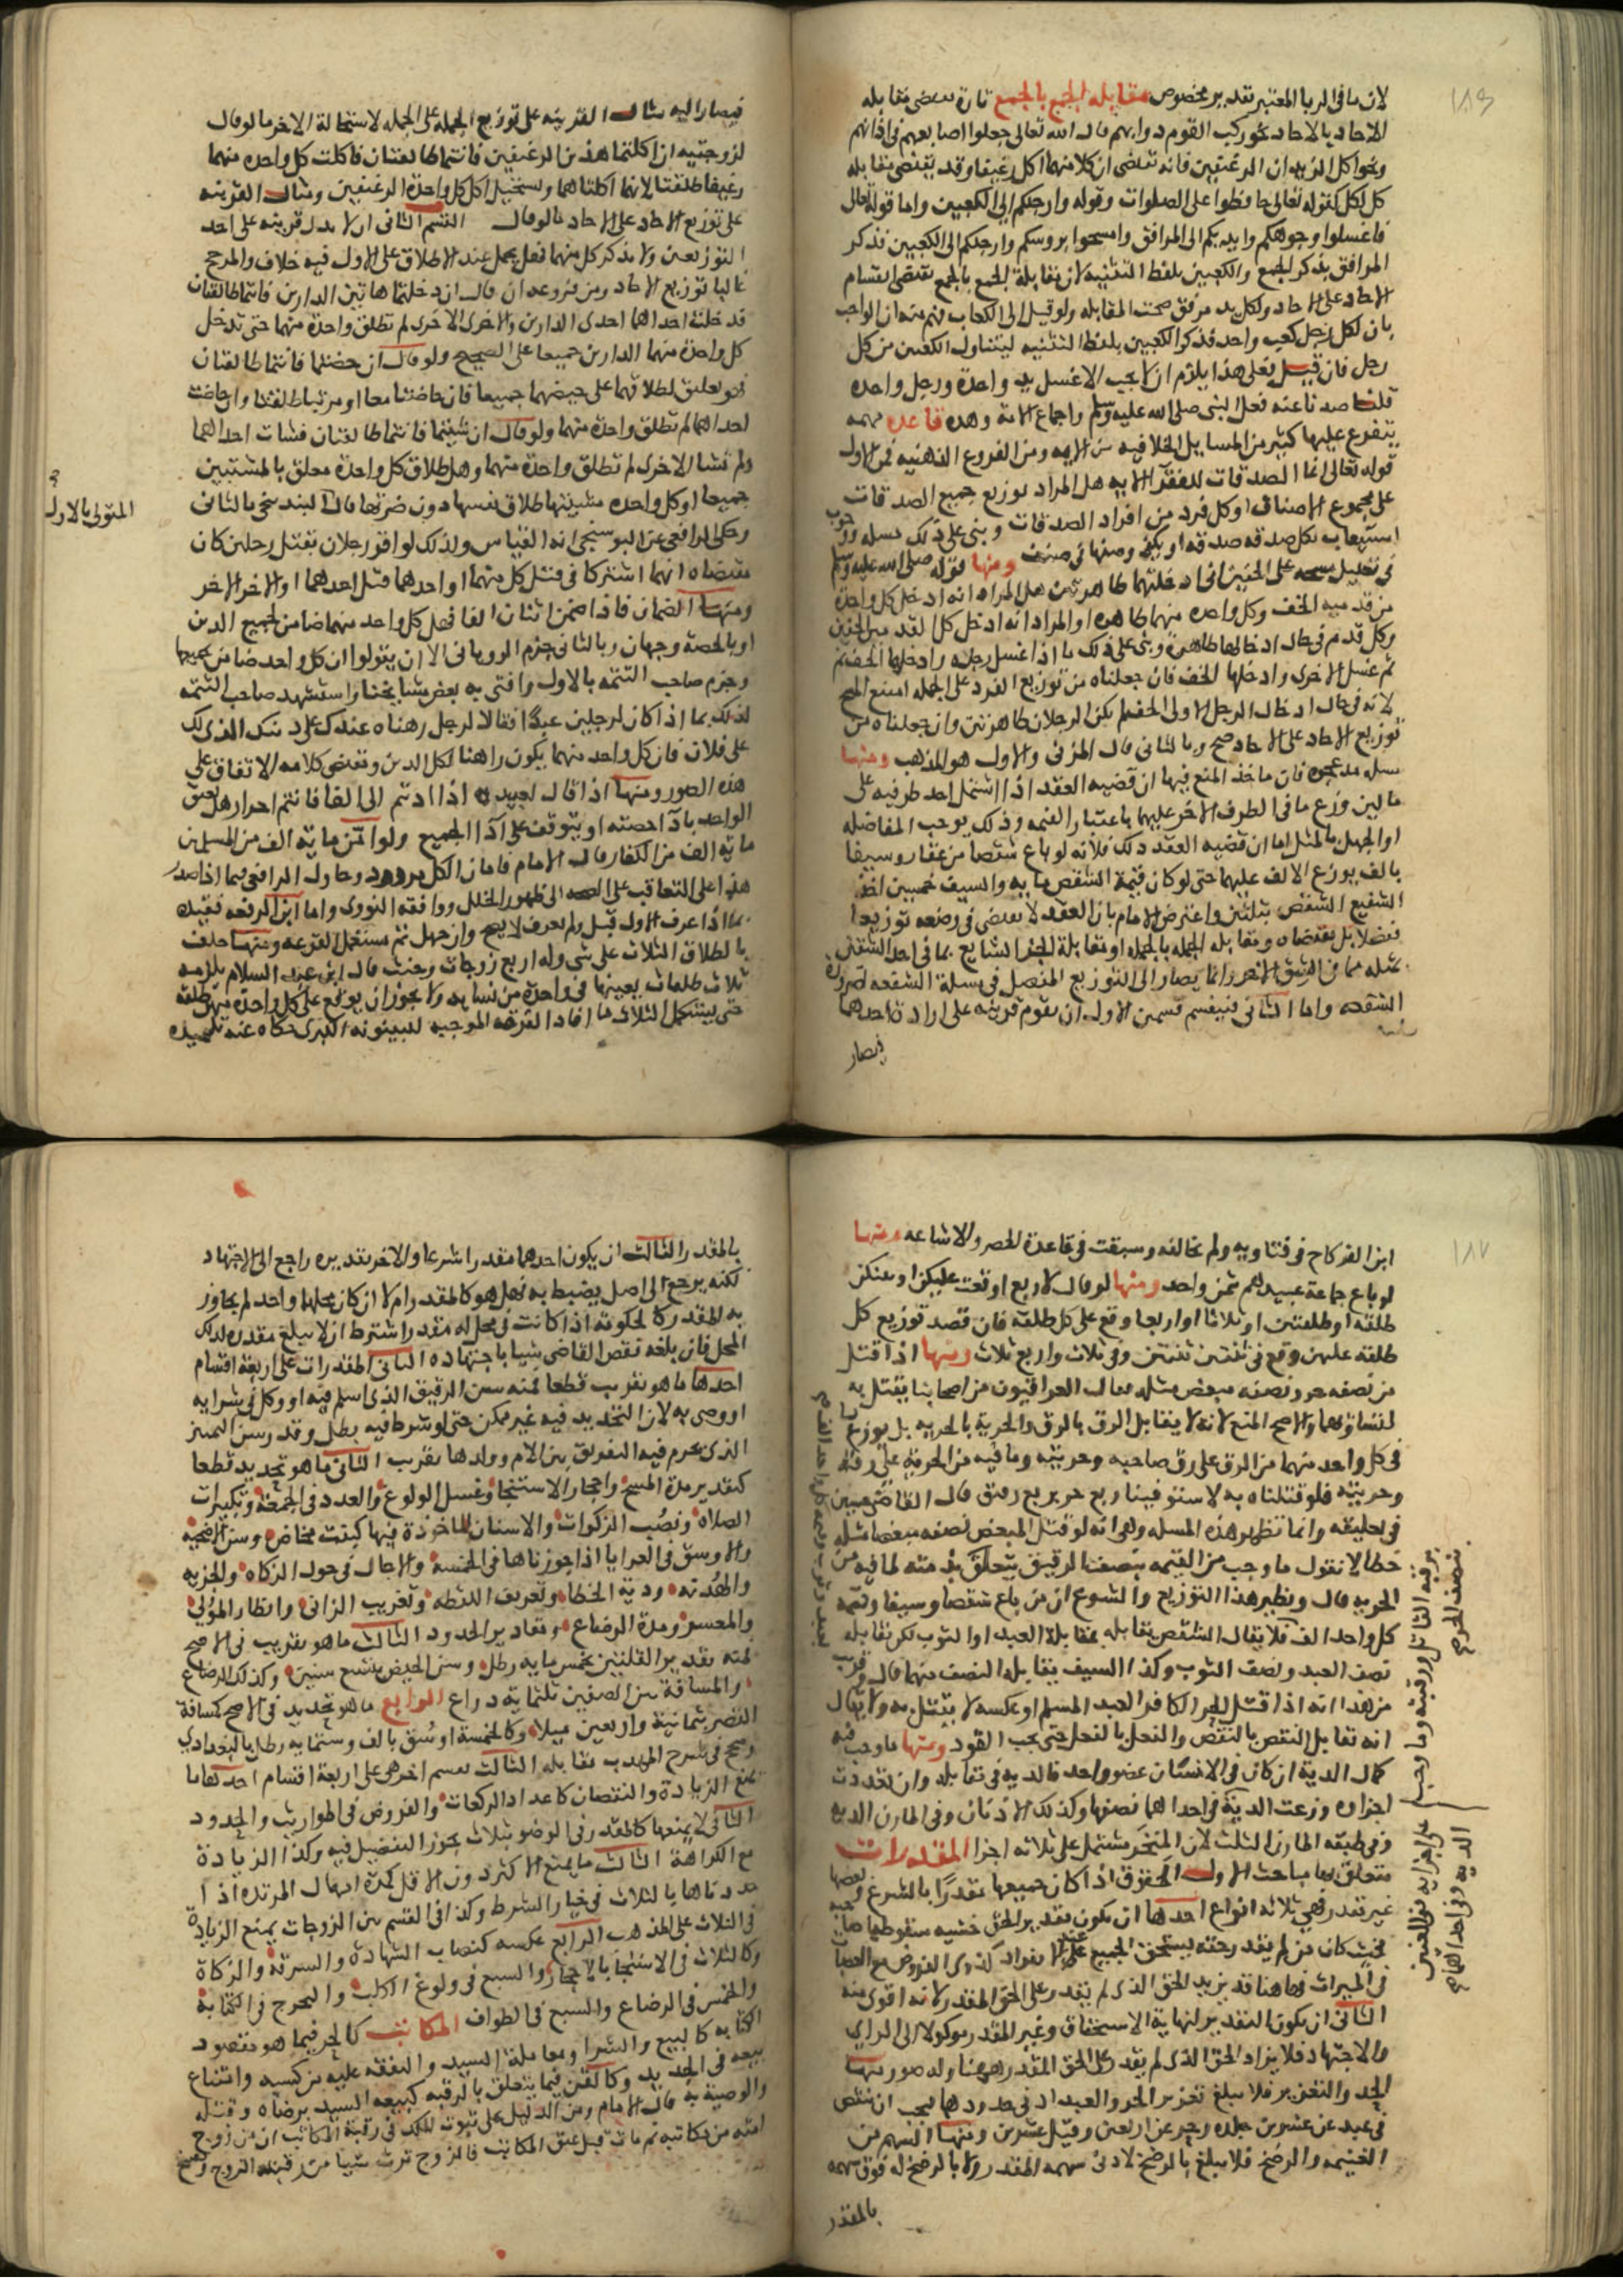 ١٨٦
لان ما في الربا المعتبر تقدير مخصوص مقابله الجمع بالجمع تارة تقتضى مقابله
الاحاد بالاحاد نحو ركب القوم دوابهم قال الله تعالى جعلوا اصابعهم في اذانهم
ونحو اكل الزيدان الرغيفين فانه يقتضى ان كلا منهما اكل رغيفا وقد يقتضى مقابله
كل لكل كقوله تعالى حافظوا على الصلوات وقوله وارجلكم الى الكعبين واما قوله تعالى
فاغسلوا وجوهكم وايديكم الى المرافق وامسحوا بروسكم وارجلكم الى الكعبين فذكر
المرافق بذكر الجمع والكعبين بلفظ التثنيه لان مقابلة الجمع بالجمع تقتضى انقسام
الاحاد على الاحاد ولكل يد مرفق صحت المقابله ولو قيل الى الكعاب فهم منه ان الواجب
بان لكل رجل كعب واحد فذكر الكعبين بلفظ التثنيه ليتناول الكعبين من كل
رجل فان قيل فعلى هذا يلزم ان لا يجب الا غسل يد واحدة ورجل واحده
قلنا صدنا عنه فعل النبى صلى الله عليه وسلم واجماع الامة وهذه قاعده مهمه
يتفرع عليها كثير من المسايل الخلافيه بين الايمه ومن الفروع الذهنيه فمن الاول
قوله تعالى انما الصدقات للفقرآ الايه هل المراد توزيع جميع الصدقات
على مجموع الاصناف او كل فرد من افراد الصدقات وبنى على ذلك مسله وجوب
استيعاب بكل صدقه صدقه او يكفى وضعها في صنف ومنها قوله صلى الله عليه وسلم
في تعليل مسحه على الخفين انى ادخلتهما طاهرتين هل المراد انه ادخل كل واحدة
من قدميه الخف وكل واحده منهما طاهره او المراد انه ادخل كلا القدمين الخفين
وكل قدم في حال ادخالها طاهرة وبنى على ذلك ما اذا غسل رجله وادخلها الخف ثم
ثم غسل الاخرى وادخلها الخف فان جعلناه من توزيع الفرد على الجمله امتنع المسح
لانه في حال ادخال الرجل الاولى الخف لم تكن الرجلان طاهرتين وان جعلناه من
توزيع الاحاد على الاحاد صح وبالثانى قال المزنى والاول هو المذهب ومنها
مسله مد عجوه فان ماخذ المنع فيها ان قضيه العقد اذا اشتمل احد طرفيه على
مالين وزع ما في الطرف الاخر عليهما باعتبار القيمه وذلك يوجب المفاضله
او الجهل بالمثل اما ان قضيه العقد ذلك فلانه لو باع شقصا من عقار وسيفا
بالف يوزع الالف عليهما حتى لو كان قيمة الشقص مايه والسيف خمسين اخذ
الشفيع الشقص بثلثين واعترض الامام بان العقد لا يقتضى في وضعه توزيعا
مفصلا بل مقتضاه ومقابله الجمله بالجمله او مقابلة الجزء الشايع مما في احد الشقين
بمثله مما في الشق الاخر وانما يصار الى التوزيع المفصل في مسلة الشفعه لضرورة
الشفعه واما الثانى فينقسم قسمين الاول ان تقوم قرينه على ارادة احدهما
فيصار
فيصار اليه مثال القرينه على توزيع الجمله على الجمله لاستحالة الاخر ما لو قال
لزوجتيه ان اكلتما هذين الرغيفين فانتما طالقتان فاكلت كل واحده منهما
رغيفا طلقتا لانهما اكلتاهما ويستحيل اكل كل واحدة الرغيفين ومثال القرينه
على توزيع الاحاد على الاحاد ما لو قال القسم الثانى ان لا يدل قرينه على احد
التوزيعين ولا يذكر كل منهما فهل يحمل عند الاطلاق على الاول فيه خلاف والمرجح
غالبا توزيع الاحاد ومن فروعه ان قال ان دخلتما هاتين الدارين فانتما طالقتان
فدخلت احداهما احدى الدارين والاخرى الاخرى لم تطلق واحدة منهما حتى تدخل
كل واحدة منهما الدارين جميعا على الصحيح ولو قال ان حضتما فانتما طالقتان
فهو تعليق لطلاقهما على حيضهما جميعا فان حاضتا معا او مرتبا طلقتا وان حاضت
احداهما لم تطلق واحدة منهما ولو قال ان شيتما فانتما طالقتان فشات احداهما
ولم تشا الاخرى لم تطلق واحدة منهما وهل طلاق كل واحدة معلق بالمشيتين
جميعا او كل واحده مشيتها طلاق نفسها دون ضرتها قال البندنيجى بالثانى
المتولى بالاول
وحكى الرافعى عن البوسنجى انه القياس ولذلك لو اقر رجلان بقتل رجلين كان
مقتضاه انهما اشتركا في قتل كل منهما او احدهما قتل احدهما او الاخر الاخر
ومنها الضمان فاذا ضمن اثنان الفا فهل كل واحد منهما ضامن لجميع الدين
او بالحصة وجهان وبالثانى جزم الرويانى الا ان يقولوا ان كل واحد ضامن جميعها
وجزم صاحب التتمه بالاول وافتى به بعض مشايخنا واستشهد صاحب التتمه
لذلك بما اذا كان لرجلين عبد فقالا لرجل رهناه عندك على دينك الذى لك
على فلان فان كل واحد منهما يكون راهنا لكل الدين وتقتضى كلامه الاتفاق على
هذه الصور ومنها اذا قال لعبيده اذا اديتم الى الفا فانتم احرار هل يعتق
الواحد بادآ حصته او يتوقف على ادآ الجميع ولو امن مايه الف من المسلمين
مايه الف من الكفار قال الامام فامان الكل مردود وحاول الرافعى فيما اذا صدر
هذا على التعاقب على الصحه الى ظهور الخلل ووافقه النووى واما ابن الرفعه فقيده
بما اذا عرف الاول قيل ولم يعرف لا يصح وان جهل ثم تستعمل القرعه ومنها حلف
بالطلاق الثلاث على شى وله اربع زوجات وحنث قال ابن عبد السلام يلزمه
ثلاث طلقات يعينها في واحدة من نسايه ولا يجوز ان يوقع على كل واحدة منهن طلقة
حتى يستكمل الثلاث ما افاد الفرقه الموجبه للبينونه الكبرى حكاه عنه تلميذه
١٨٧
ابن الفركاح في فتاويه ولم يخالفه وسبقت في قاعدة الحصر والاشاعه ومنها
لو باع جماعة عبيدهم بثمن واحد ومنها لو قال لاربع اوقعت عليكن او بينكن
طلقة او طلقتين او ثلاثا او اربعا وقع على كل طلقه فان قصد توزيع كل
طلقه عليهن وقع في ثنتين ثنتين وفي ثلاث واربع ثلاث ومنها اذا قتل
من نصفه حر ونصفه مبعض مثله فقال العراقيون من اصحابنا يقتل به
لتساويهما والاصح المنع لانه لا يتقابل الرق بالرق والحرية بالحريه بل يوزع ما
في كل واحد منهما من الرق على رق صاحبه وحريته وما فيه من الحرية على رقه
وحريته فلو قتلناه به لاستوفينا ربع حر بربع رقيق قال القاضى حسين
في تعليقه وانما تظهر هذه المسله وهى انه لو قتل المبعض نصفه مبعضا مثله
خطا لا نقول ما وجب من القيمه بنصف الرقيق يتعلق بذمته لما فيه من
الحريه قال ونظير هذا التوزيع والشيوع ان من باع شقصا وسيفا وقيمه
كل واحد الف فلا يقال الشقص يقابله بمقابلة العبد او الثوب لكن نقابله
نصف العبد ونصف الثوب وكذا السيف يقابله النصف منهما قال وقريب
من هذا انه اذا قتل الحر الكافر العبد المسلم او عكسه لا يقتل به ولا يقال
انه تقابل النقص بالنقص والفضل بالفضل حتى يجب القود ومنها ما وجب فيه
كمال الدية ان كان في الانسان عضو واحد فالديه في مقابله وان تعددت
اجزاوه وزعت الدية في احداهما نصفها وكذلك الاذنان وفي المارن الديه
وفي طبقه المارن الثلث لان المنخر مشتمل على ثلاثه اجزا المقدرات
يتعلق بها مباحث الاول الحقوق اذا كان جميعها مقدرا بالشرع وبعضها
غير مقدر فهى ثلاثه انواع احدها ان يكون تقدير الحق خشيه سقوط صاحبه
فحيث كان من لم يقدر حقه يستحق الجميع عند الانفراد كذوى الفروض مع العصبات
في الميراث فهاهنا قد يزيد الحق الذى لم يقدر على الحق المقدر لانه اقوى منه
الثانى ان يكون التقدير لنهاية الاستحقاق وغير المقدر موكولا الى الراى
والاجتهاد فلا يزاد الحق الذى لم يقدر على الحق المقدر ههنا وله صور منها
الحد والتعزير فلا يبلغ تعزير الحر والعبد ادنى حدودهما فيجب ان ينقص
في عبد عن عشرين جلده وحر عن اربعين وقيل عشرين ومنها السهم من
الغنيمه والرضخ فلا يبلغ بالرضخ لادنى سهمه المقدر ولا بالرضخ له فوق سهمه
بالمقدر
بالمقدر الثالث ان يكون احدهما مقدرا شرعا والاخر تقديره راجع الى الاجتهاد
لكنه يرجع الى اصل يضبط به فهل هو كالمقدر ام لا ان كان محلها واحد لم يجاوز
به المقدر كالحكومة اذا كانت في محل له مقدر اشترط ان لا يبلغ مقدره لذلك
المحل فان بلغه نقص القاضى شيا باجتهاده الثانى المقدرات على اربعة اقسام
احدها ما هو تقريب قطعا فمنه سن الرقيق الذى اسلم فيه او وكل في شرايه
او وصى به لان التحديد فيه غير ممكن حتى لو شرط فيه بطل وقد وسن التمييز
الذى يحرم فيه التفريق بين الام وولدها تقريب الثانى ما هو تحديد قطعا
كتقدير مدة المسح واحجار الاستنجا وغسل الولوغ والعدد في الجمعة وتكبيرات
الصلاة ونصب الزكوات والاسنان الماخوذة فيها كبنت مخاض وسن الاضحيه
والاوسق في العرايا اذا جوزناها في الخمسة والاجال في حول الزكاه والجزيه
والهدنه ودية الخطا وتعريف اللقطه وتغريب الزانى وانظار المولى
والمعسر ومدة الرضاع ومقادير الحدود الثالث ما هو تقريب في الاصح
فمنه تقدير القلتين بخمس مايه رطل وسن الحيض بتسع سنين وكذلك الرضاع
والمسافة بين الصفين ثلثماية دراع الرابع ما هو تحديد في الاصح كمسافة
القصر بثمانية واربعين ميلا وكالخمسة اوسق بالف وستمايه رطل بالبغدادى
وصح في شرح المهذب مقابله الثالث تقسم اخر هى على اربعة اقسام احدها ما
تمنع الزيادة والنقصان كاعداد الركعات والفروض في المواريث والحدود
الثانى لا يمنعها كالمقدر في الوضو بثلاث يجوز النقص فيه وكذا الزيادة
مع الكراهة الثالث ما يمنع الاكثر دون الاقل كمدة امهال المرتد اذا
حددناها بالثلاث في خيار الشرط وكذا في القسم بين الزوجات يمنع الزيادة
في الثلاث على المذهب الرابع عكسه كنصاب الشهادة والسرقة والزكاة
وكالثلاث في الاستنجا بالاحجار والسبع في ولوغ الكلب
والخمس في الرضاع والسبع في الطواف المكاتب كالحر فيما هو مقصود
الكتابه كالبيع والشرا ومعاملة السيد والنفقه عليه من كسبه وامتناع
بيعه في الجديد وكالقن فيما يتعلق بالرقبه كبيعه السيد برضاه وقتله
والوصية به قال الامام ومن الدليل على ثبوت الملك في رقبة المكاتب ان من زوج
امته من مكاتبه ثم مات قبل عتق المكاتب فالزوج ترث شيا من رقبته الزوج وينفسخ